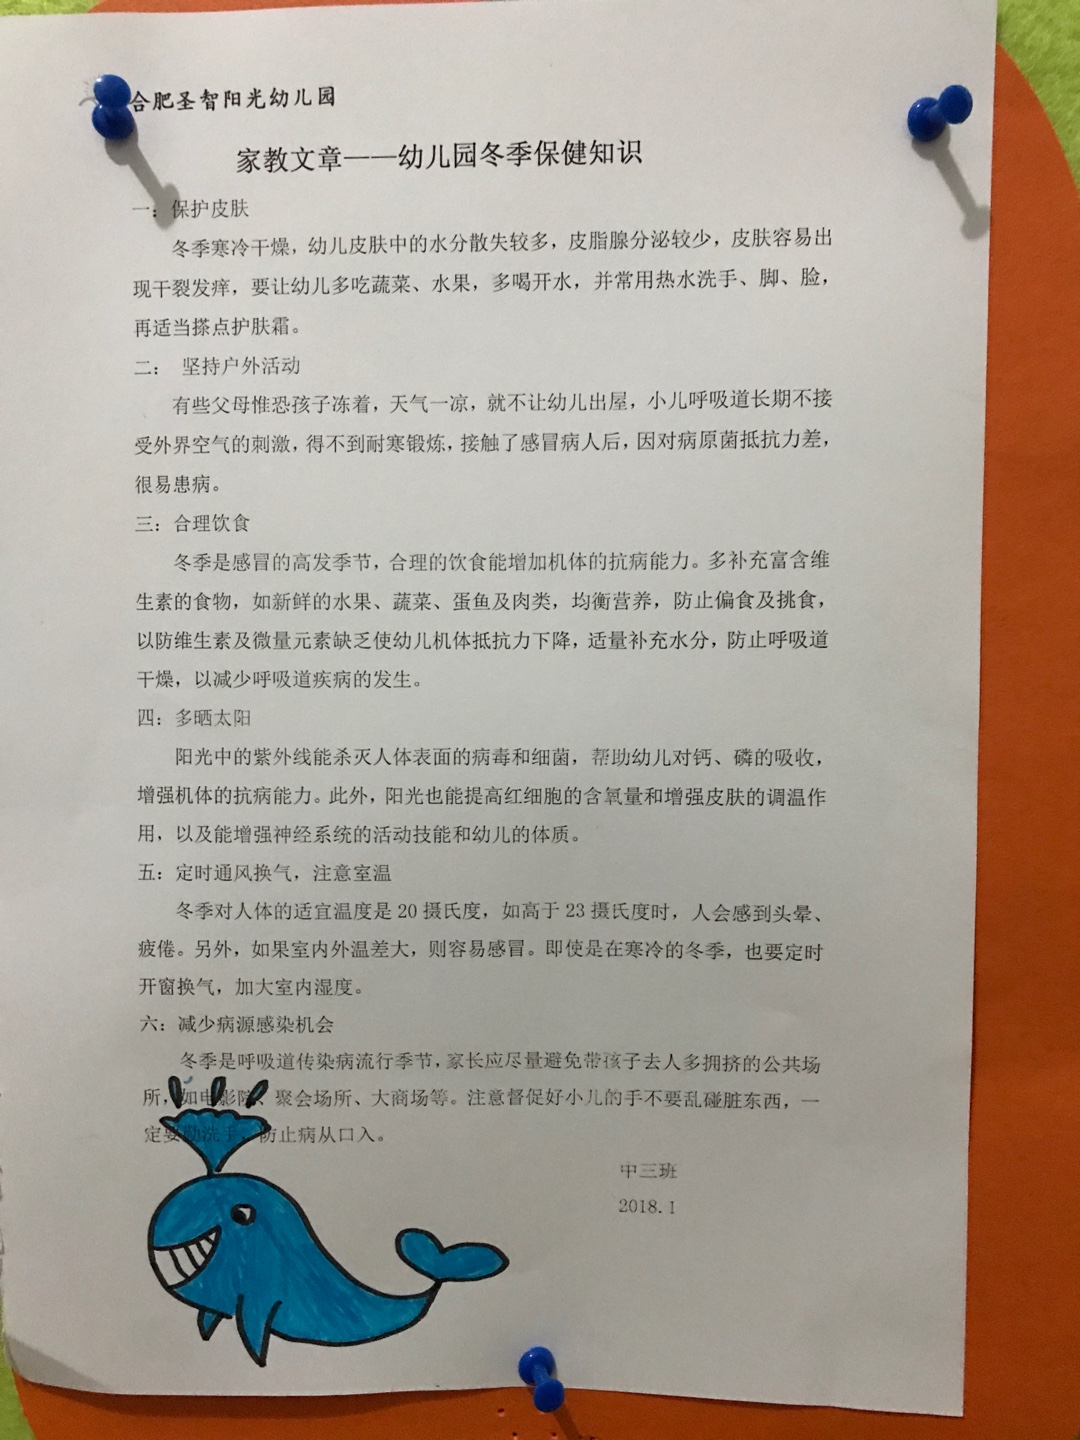 合肥圣智阳光幼儿园
家教文章——幼儿园冬季保健知识
一：保护皮肤
冬季寒冷干燥，幼儿皮肤中的水分散失较多，皮脂腺分泌较少，皮肤容易出
现干裂发痒，要让幼儿多吃蔬菜、水果，多喝开水，并常用热水洗手、脚、脸，
再适当搽点护肤霜。
二： 坚持户外活动
有些父母惟恐孩子冻着，天气一凉，就不让幼儿出屋，小儿呼吸道长期不接
受外界空气的刺激，得不到耐寒锻炼，接触了感冒病人后，因对病原菌抵抗力差，
很易患病。
三：合理饮食
冬季是感冒的高发季节，合理的饮食能增加机体的抗病能力。多补充富含维
生素的食物，如新鲜的水果、蔬菜、蛋鱼及肉类，均衡营养，防止偏食及挑食，
以防维生素及微量元素缺乏使幼儿机体抵抗力下降，适量补充水分，防止呼吸道
干燥，以减少呼吸道疾病的发生。
四：多晒太阳
阳光中的紫外线能杀灭人体表面的病毒和细菌，帮助幼儿对钙、磷的吸收，
增强机体的抗病能力。此外，阳光也能提高红细胞的含氧量和增强皮肤的调温作
用，以及能增强神经系统的活动技能和幼儿的体质。
五：定时通风换气，注意室温
冬季对人体的适宜温度是 20 摄氏度，如高于 23 摄氏度时，人会感到头晕、
疲倦。另外，如果室内外温差大，则容易感冒。即使是在寒冷的冬季，也要定时
开窗换气，加大室内湿度。
六：减少病源感染机会
冬季是呼吸道传染病流行季节，家长应尽量避免带孩子去人多拥挤的公共场
所，如电影院、聚会场所、大商场等。注意督促好小儿的手不要乱碰脏东西，一
定要勤洗手，防止病从口入。
中三班
2018.1